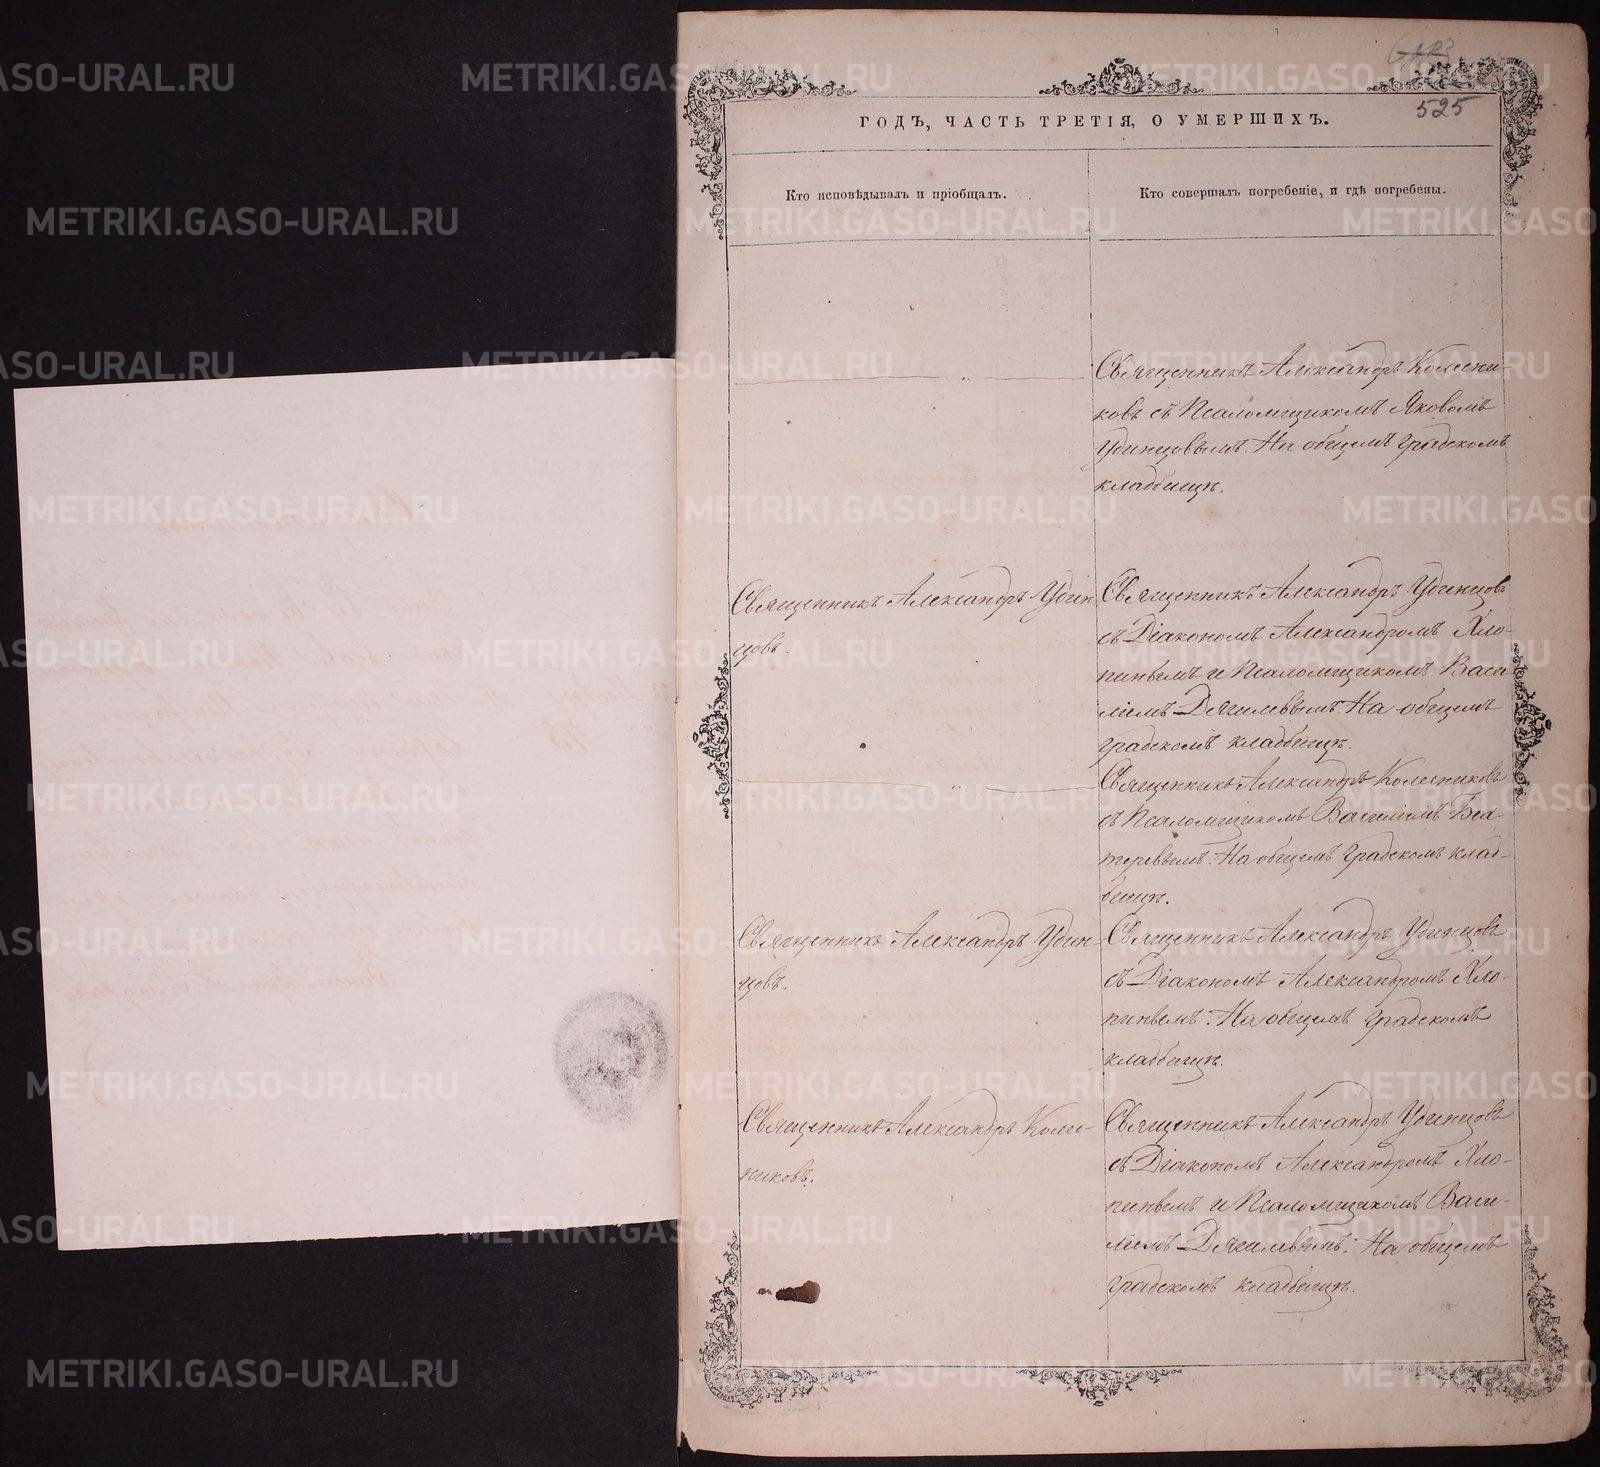 525
ГОДЪ, ЧАСТЬ ТРЕТІЯ, О УМЕРШИХЪ.
Кто исповѣдывалъ и пріобщалъ.
Кто совершалъ погребеніе, и гдѣ погребены.
Священникъ Александръ Колесни-
ковъ съ Псаломщикомъ Яковомъ
Удинцовымъ. На общемъ градскомъ
кладбищѣ.
Священникъ Александръ Удин
цовъ.
Священникъ Александръ Удинцовъ
съ Діакономъ Александромъ Хло-
пинымъ и Псаломщикомъ Васи
ліемъ Дягилевымъ. На общемъ
градскомъ кладбищѣ.
Священникъ Александръ Колесниковъ
съ Псаломщикомъ Василіемъ Бех-
теревымъ. На общемъ градскомъ клад-
бищѣ.
Священникъ Александръ Удин-
цовъ.
Священникъ Александръ Удинцовъ
съ Діакономъ Александромъ Хло-
пинымъ. На общемъ градскомъ
кладбищѣ.
Священникъ Александръ Колес-
никовъ.
Священникъ Александръ Удинцовъ
съ Діакономъ Александромъ Хло-
пинымъ и Псаломщикомъ Васи-
ліемъ Дягилевымъ. На общемъ
градскомъ кладбищѣ.
METRIKI.GASO-URAL.RU